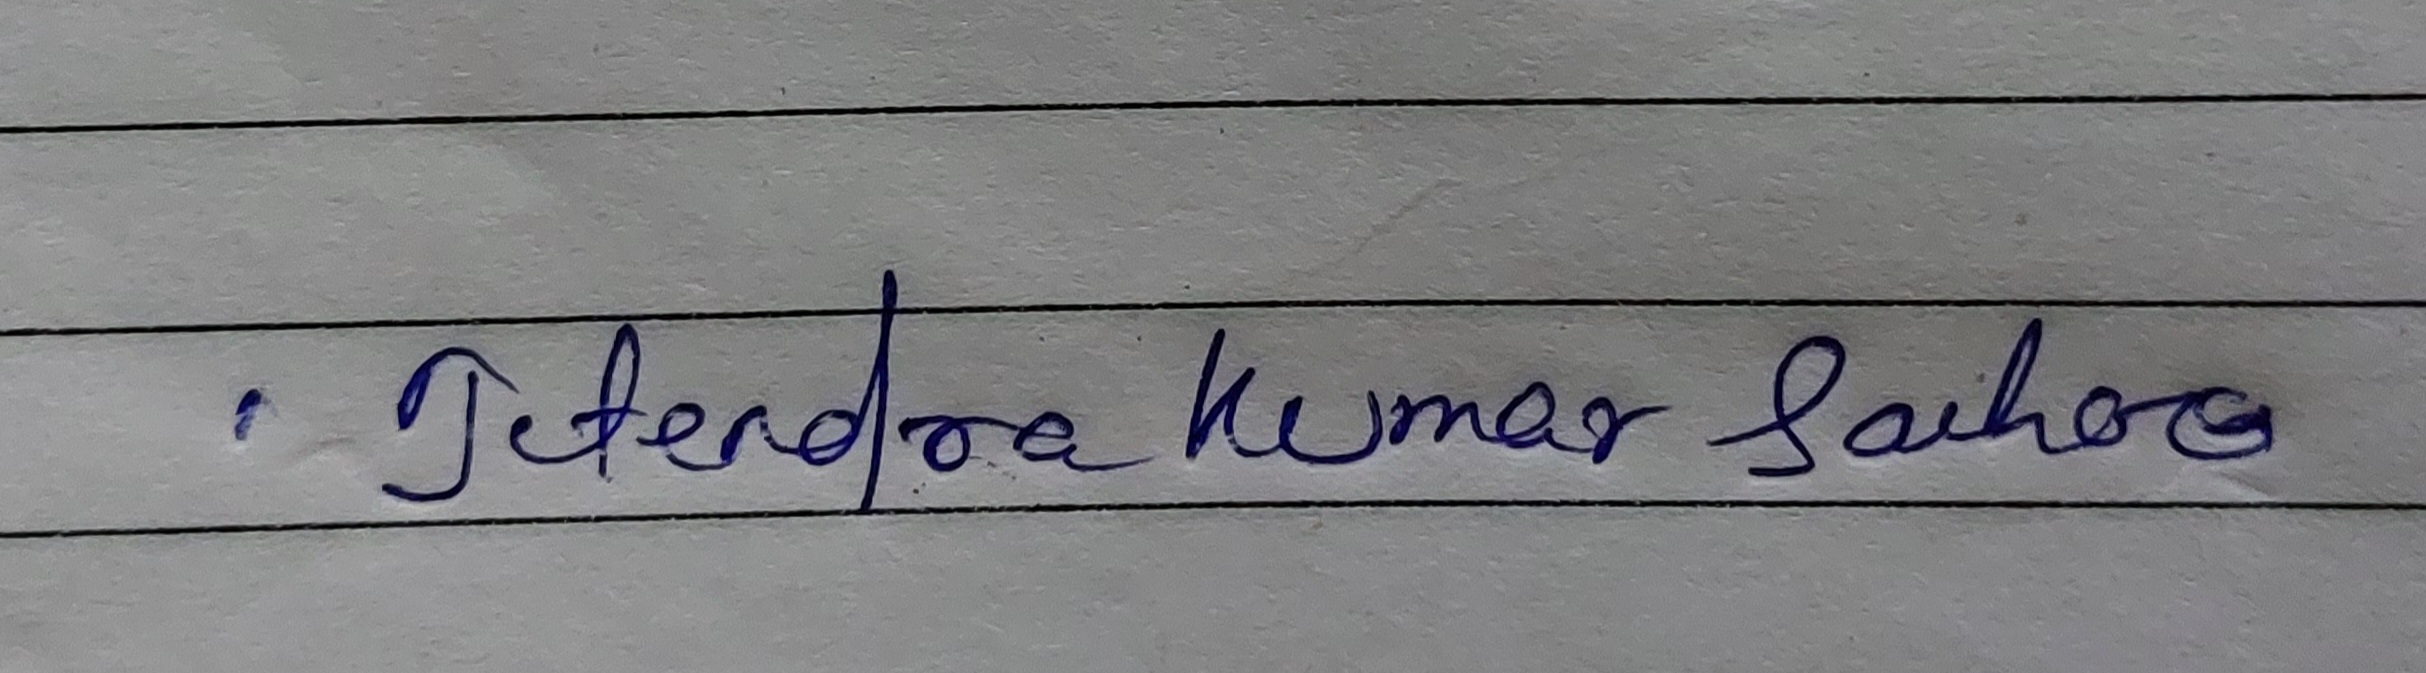 Jitendra Kumar Sahoo